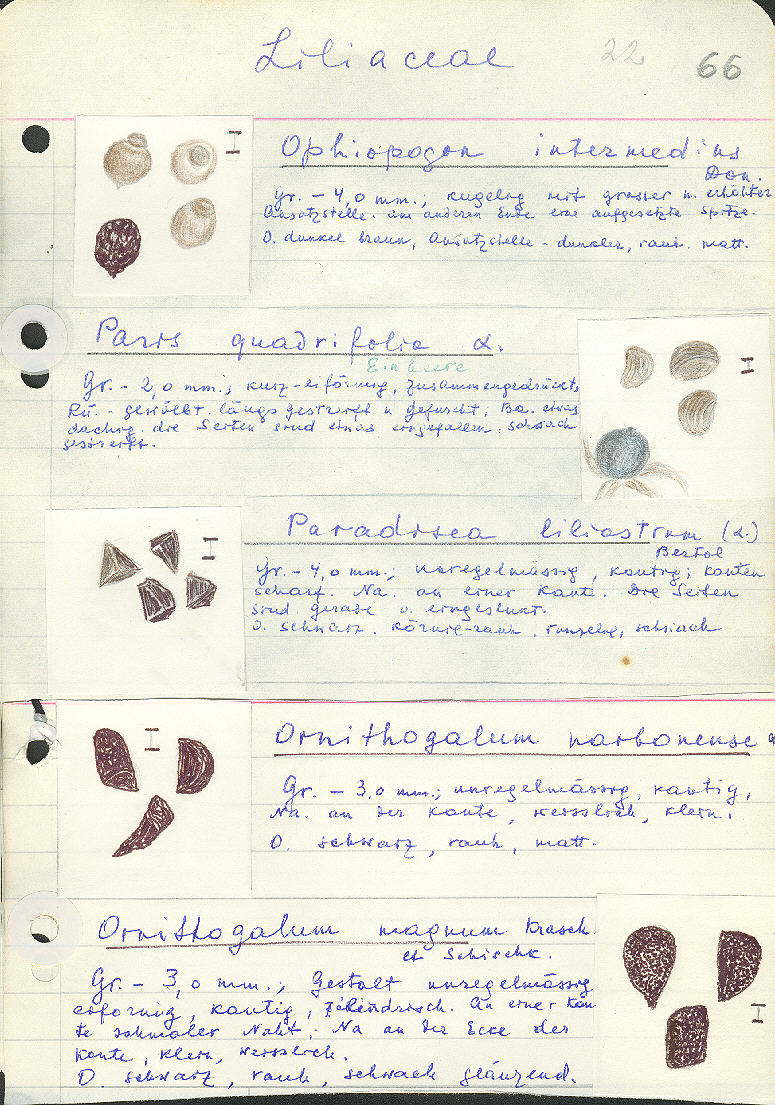 Liliaceae 22 66
Ophiopogon intermedius
Don.
Gr. - 4,0 mm.; kugelog mit grosser u. erhöhter
Ansatzstelle. am anderen Ende eine aufgesetzte Spitze.
O. dunkel braun, Ansatzstelle - dunkler, rauh. matt.
Paris quadrifolia L.
Einbeere
Gr. - 2,0 mm.; kurz-eiförmig, zusammengedrückt,
Rü. - gewölbt. längs gestreift u gefurcht; Ba. etwas
dachig. die Seiten sind etwas eingefallen. schwach
gestreift.
Paradisea liliastrum (L.)
Bertol
Gr. - 4,0 mm.; unregelmässig, kantig; Kanten
scharf. Na. an einer Kante. Die Seiten
sind gerade o. eingesenkt.
O. schwarz. körnig-rauh. runzelig, schwach
Ornithogalum narbonense
Gr. - 3,0 mm.; unregelmässig, kantig,
Na. an der Kante, weisslich, klein.
O. schwarz, rauh, matt.
Ornithogalum magnum Krasch.
et Schischk.
Gr. - 3,0 mm.; Gestalt unregelmässig
eiförmig, kantig, zilindrisch. An einer Kan
te schmaler Naht; Na an der Ecke der
Kante, klein, weisslich.
O. schwarz, rauh, schwach glänzend.